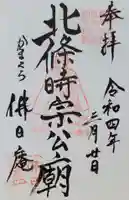 奉拝
令和四年
三月廿日
北條時宗公廟
かまくら
佛日庵